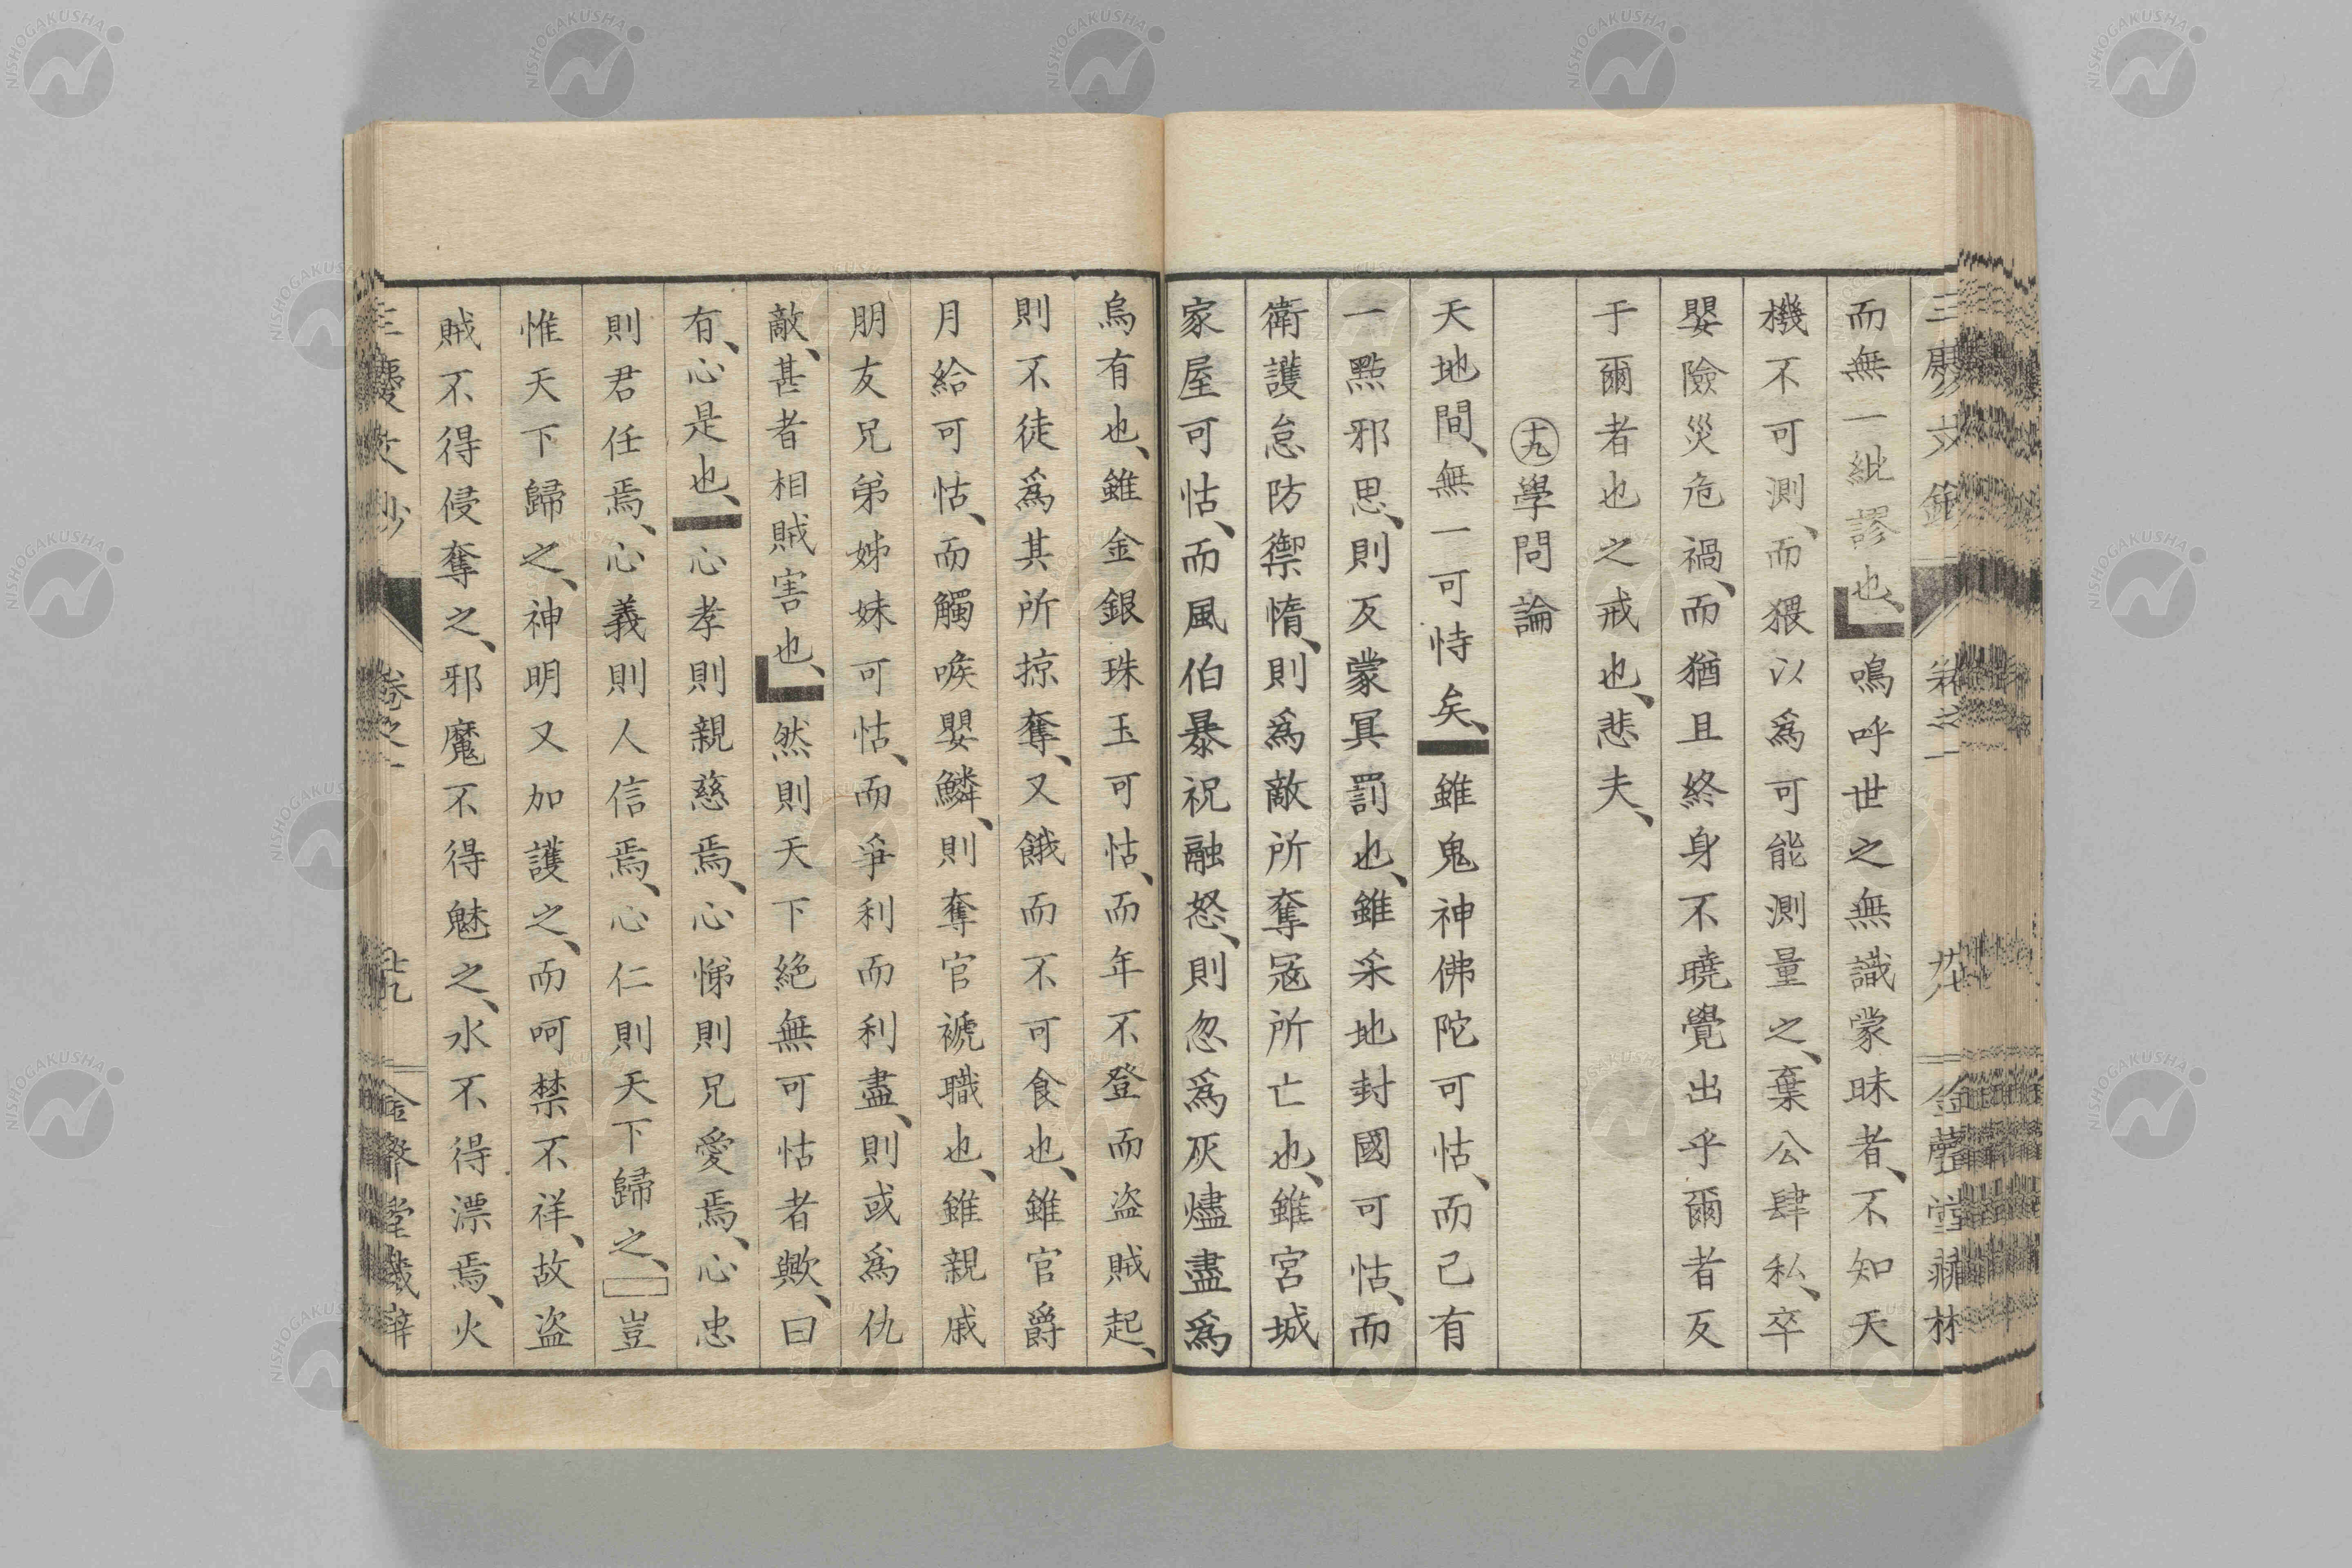 而無一紕謬也、嗚呼世之無識蒙昧者、不知天
機不可測、而猥以為可能測量之、棄公肆私、卒
嬰險災危禍、而猶且終身不曉覺出乎爾者反
于爾者也之戒也、悲夫、
十九 學問論
天地間、無一可恃矣、雖鬼神佛陀可怙、而己有
一點邪思、則反蒙冥罰也、雖采地封國可怙、而
衛護怠防禦惰、則爲敵所奪寇所亡也、雖宮城
家屋可怙、而風伯暴祝融怒、則忽爲灰燼盡爲
烏有也、雖金銀珠玉可怙、而年不登而盜賊起、
則不徒爲其所掠奪、又餓而不可食也、雖官爵
月給可怙、而觸喉嬰鱗、則奪官褫職也、雖親戚
朋友兄弟姊妹可怙、而爭利而利盡、則或爲仇
敵、甚者相賊害也、然則天下絕無可怙者歟、曰
有、心是也、心孝則親慈焉、心悌則兄愛焉、心忠
則君任焉、心義則人信焉、心仁則天下歸之、豈
惟天下歸之、神明又加護之、而呵禁不祥、故盜
賊不得侵奪之、邪魔不得魅之、水不得漂焉、火
三慶文鈔 卷之一
NISHOGAKUSHA